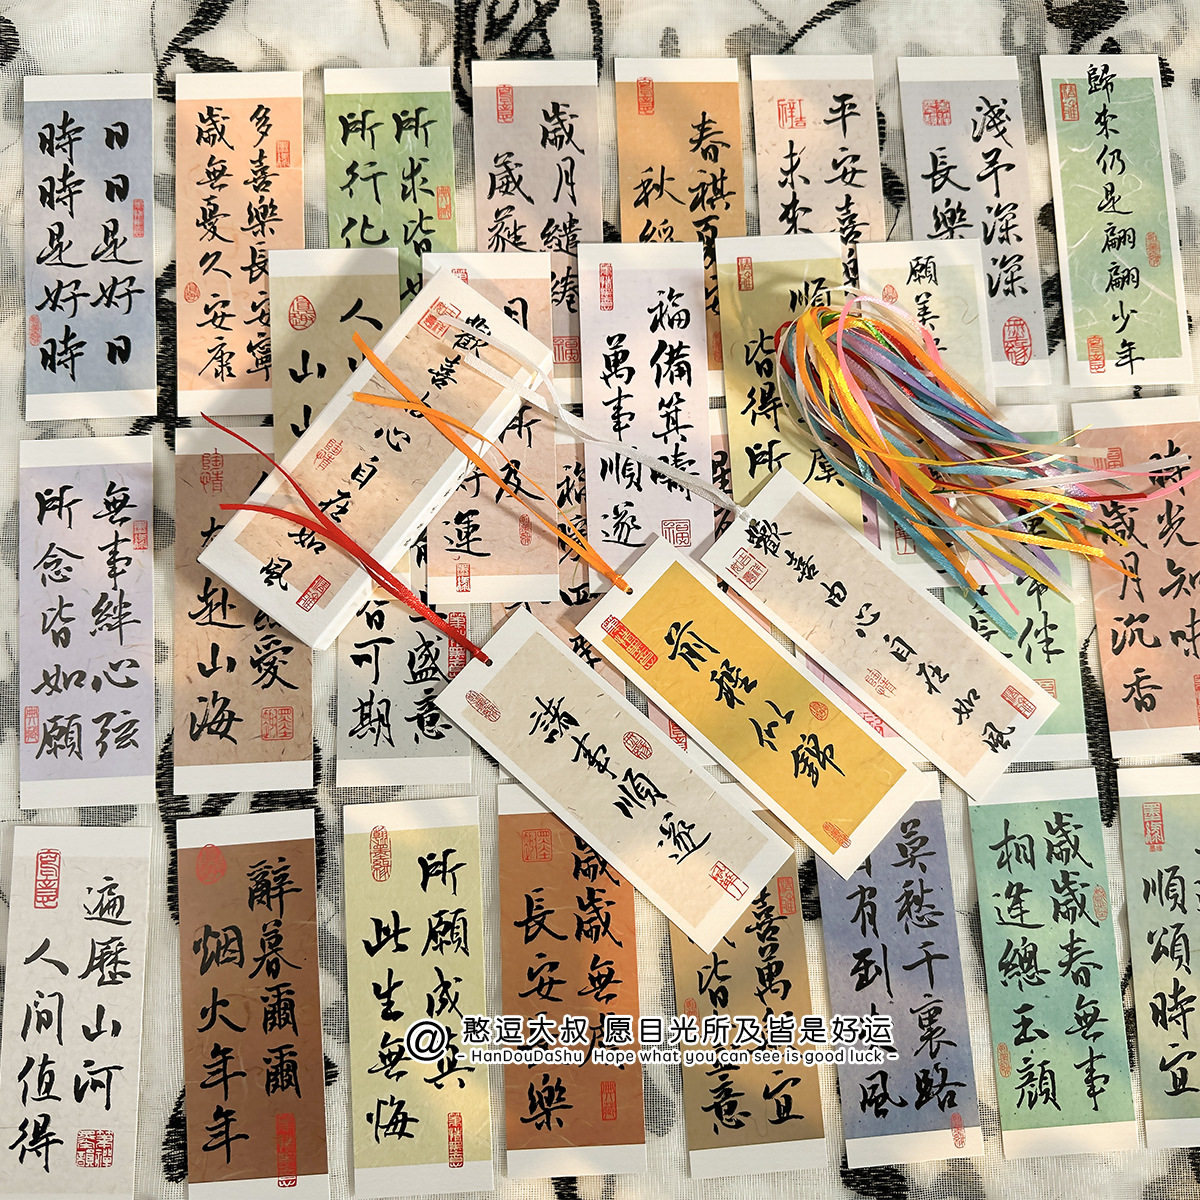 日日是好日
時時是好時
多喜樂長安寧
歲無憂久安康
所求皆
所行化
歲月繾綣
葳蕤
春祺夏安
秋綏
平安喜
未來
淺予深深
長樂
歸來仍是翩翩少年
人
山山
歡喜由心自在如風
所及
好運
福備箕疇
萬事順遂
順
皆得所
願美
無事絆心弦
所念皆如願
愛
赴山海
盛意
皆可期
諸事順遂
前程似錦
歡喜由心自在如風
常伴
長
時光知味
歲月沉香
遍歷山河
人间值得
辭暮爾爾
烟火年年
所願成真
此生無悔
歲歲無虞
長安
樂
喜萬
宜
皆
意
莫愁千裏路
自有到
風
歲歲春無事
相逢總玉顏
順頌時宜
@憨逗大叔 愿目光所及皆是好运
- HanDouDaShu Hope what you can see is good luck -